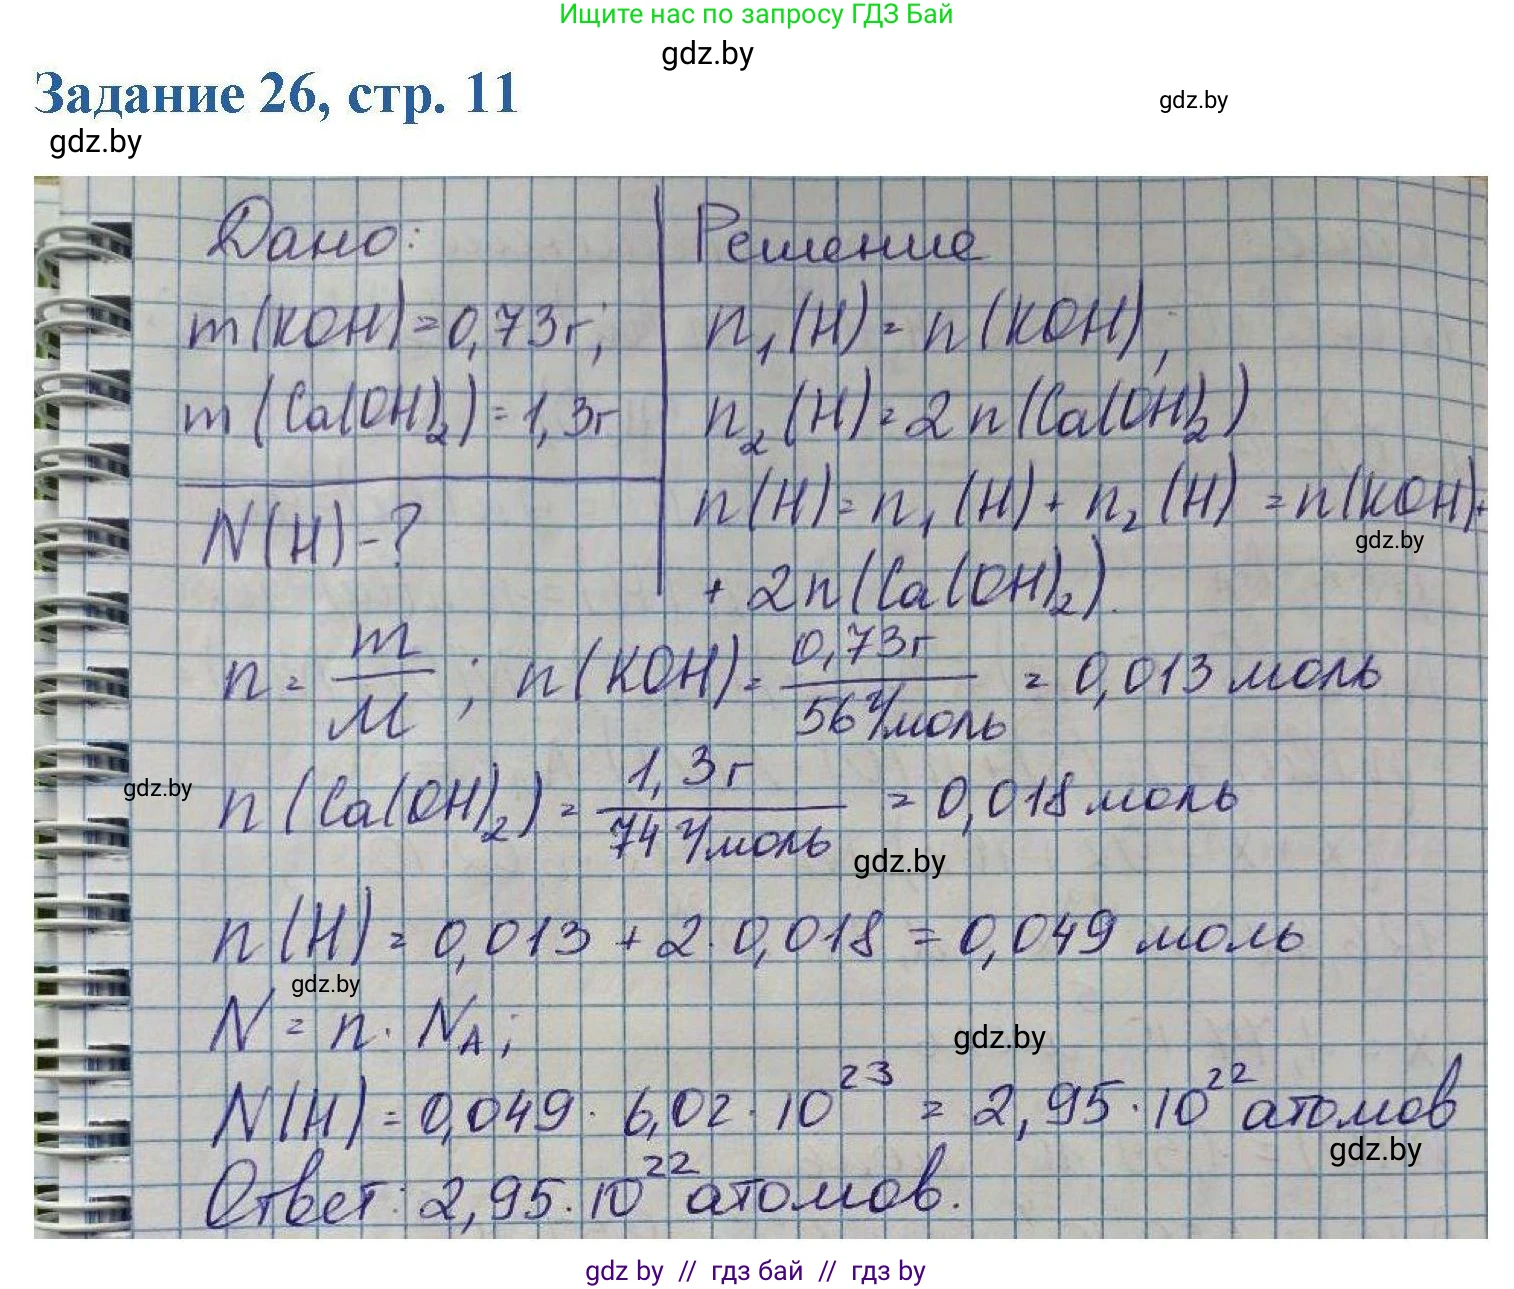 Ищите нас по запросу ГДЗ Бай
gdz.by
Задание 26, стр. 11
gdz.by
gdz.by
Дано:
m(KOH)=0,73г;
m(Ca(OH)₂)=1,3г
N(H)-?
Решение
n₁(H)=n(KOH);
n₂(H)=2n(Ca(OH)₂)
n(H)=n₁(H)+n₂(H)=n(KOH)+
gdz.by
+2n(Ca(OH)₂).
n=m/M; n(KOH)=0,73г/56г/моль=0,013моль
gdz.by
n(Ca(OH)₂)=1,3г/74г/моль=0,018моль
gdz.by
n(H)=0,013+2·0,018=0,049моль
gdz.by
N=n·N_A;
gdz.by
N(H)=0,049·6,02·10²³=2,95·10²²атомов
gdz.by
Ответ: 2,95·10²²атомов.
gdz by // гдз бай // гдз by